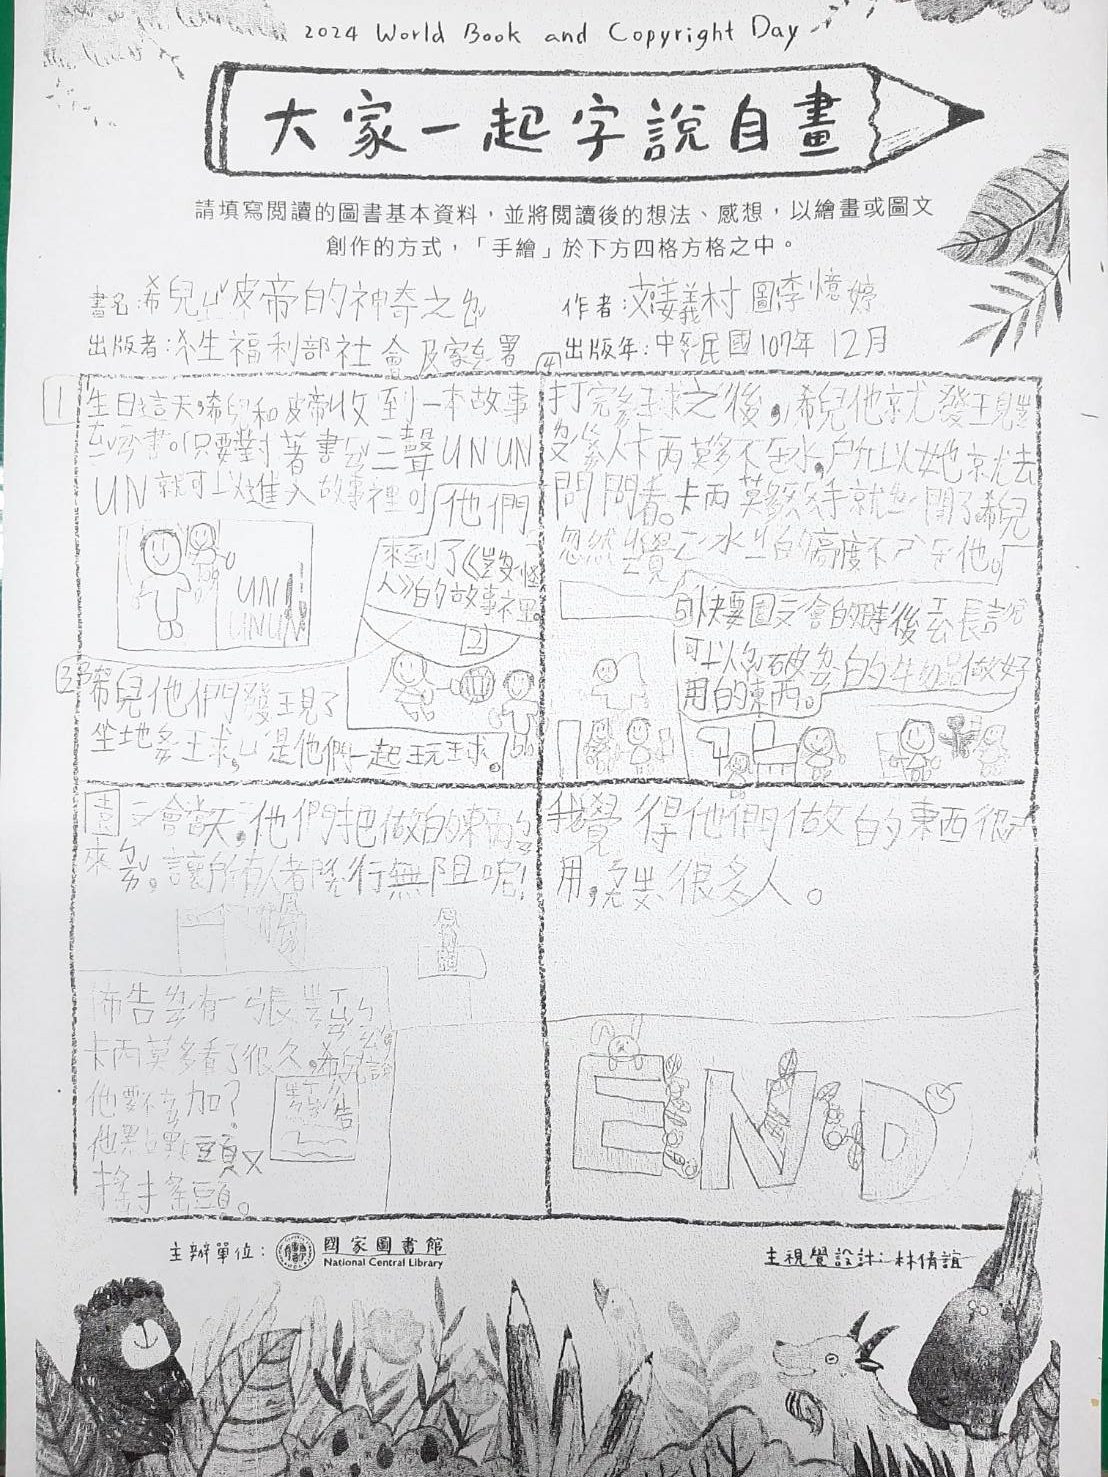 2024 World Book and Copyright Day
大家一起字說自畫
請填寫閱讀的圖書基本資料，並將閱讀後的想法、感想，以繪畫或圖文
創作的方式，「手繪」於下方四格方格之中。
書名:希兒ㄩˊ皮帝的神奇之
作者:文姜義村 圖李憶婷
出版者:生福利部社會及家署
出版年:中華民國107年12月
1
生日這天,希兒和皮帝收到一本故事
書。只要對著書三聲UNUN
UN就可以進入故事裡
他們
來到了《怪
人》的故事裡。
2
UN
UNUN
3
希兒他們發現了
坐地ㄆㄞˊ球,ㄩˊ是他們一起玩球。
4
打完球之後,希兒他就發現
人卡丙莫多不在,所以她就去
問問看。卡丙莫多手就 開了希兒
忽然覺 水 的高度不 他。
5
快要園文會的時後 長說
可以 破 的 品做好
用的東西。
園文會當天,他們把做的東西
來 。讓所有人都 行無阻呢!
佈告 有一張
卡丙莫多看了很久。希兒說
他要不 加?
他點點頭又
搖搖頭。
告
我覺得他們做的東西很
用, 很多人。
END
主辦單位：
國家圖書館
National Central Library
主視覺設計:林倩誼